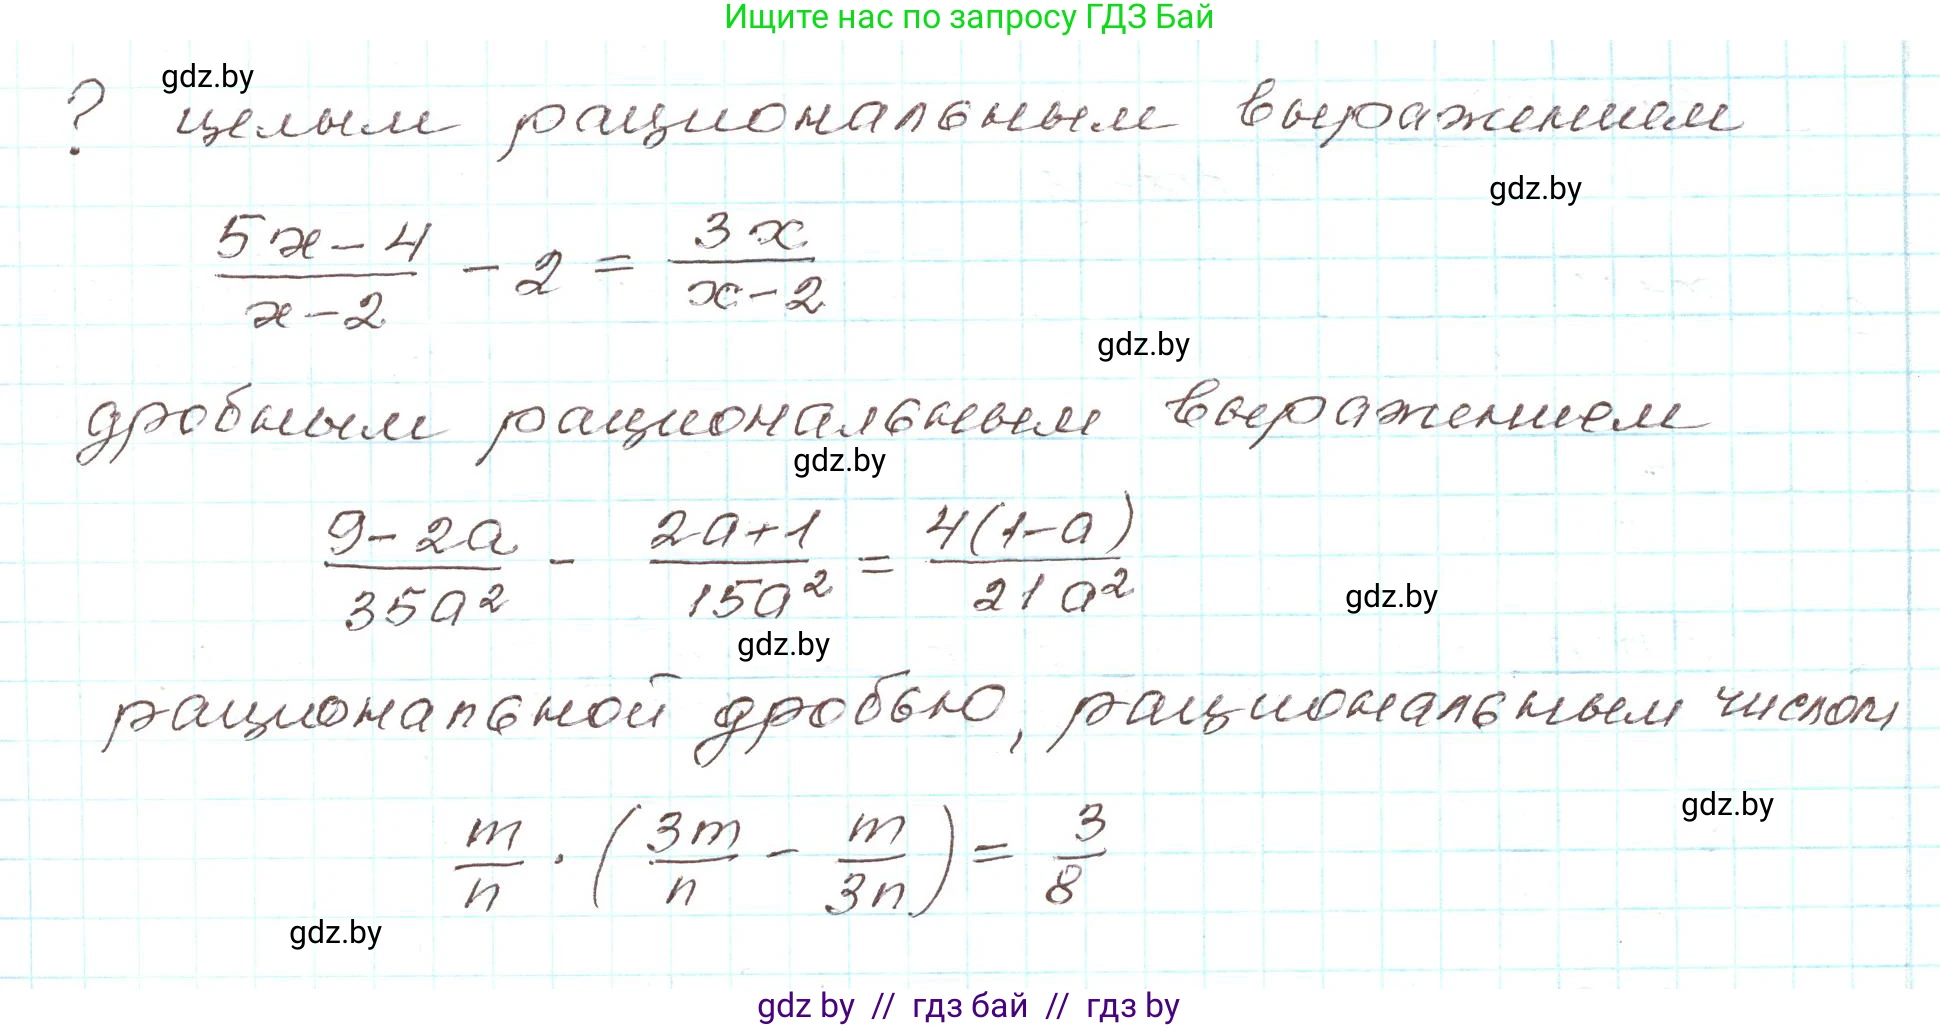 Ищите нас по запросу ГДЗ Бай
gdz.by
? целым рациональным выражением
gdz.by
(5x-4)/(x-2) - 2 = 3x/(x-2)
gdz.by
дробным рациональным выражением
gdz.by
(9-2a)/(35a²) - (2a+1)/(15a²) = 4(1-a)/(21a²)
gdz.by
gdz.by
рациональной дробью, рациональным числом
gdz.by
m/n · (3m/n - m/3n) = 3/8
gdz.by
gdz by // гдз бай // гдз by